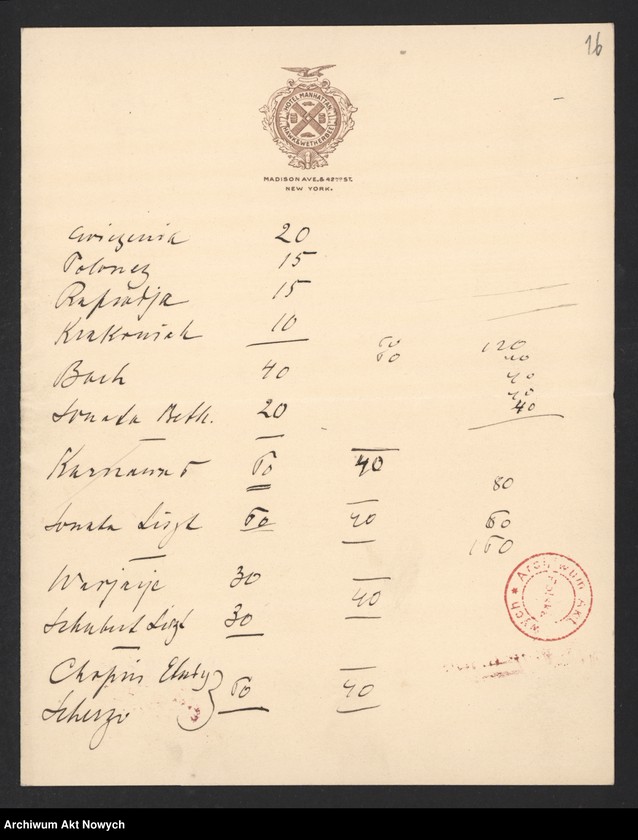 16
HOTEL MANHATTAN
HAWK & WETHERBEE
MADISON AVE. & 42ND ST.
NEW YORK.
Ćwiczenia 20
Polonez 15
Rapsodja 15
Krakowiak 10
60 120
60 40
Bach 40 40
40
Sonata Beth. 20 40
Karnawał 60 40
80
Sonata Liszt 60 40 60
160
Warjacje 30
40
Schubert Liszt 30
Chopin Etudy
60 40
Scherzo
Archiwum Akt
wych
Archiwum Akt Nowych